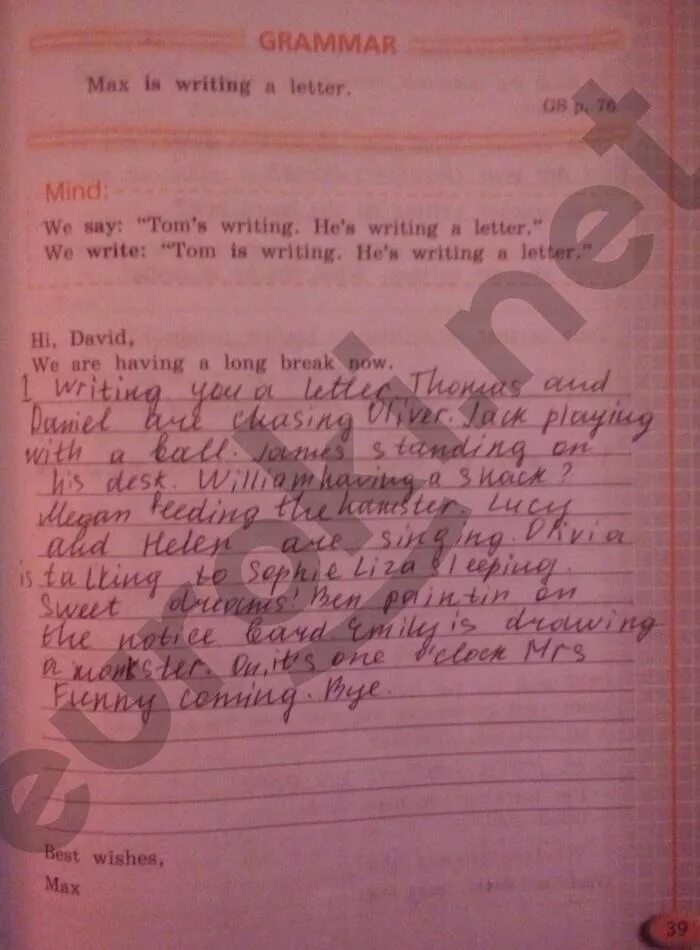 GRAMMAR
Max is writing a letter.
GS p. 76
Mind:
We say: "Tom's writing. He's writing a letter."
We write: "Tom is writing. He's writing a letter."
Hi, David,
We are having a long break now.
I writing you a letter. Thomas and
Daniel are chasing Oliver. Jack playing
with a ball. James standing on
his desk. William having a snack?
Megan feeding the hamster. Lucy
and Helen are singing. Olivia
is talking to Sophie Liza sleeping.
Sweet dreams! Ben paintin on
the notice bard Emily is drawing
a monkster. On, it's one o'clock Mrs
Funny coming. Bye.
Best wishes,
Max
39
euroki.net